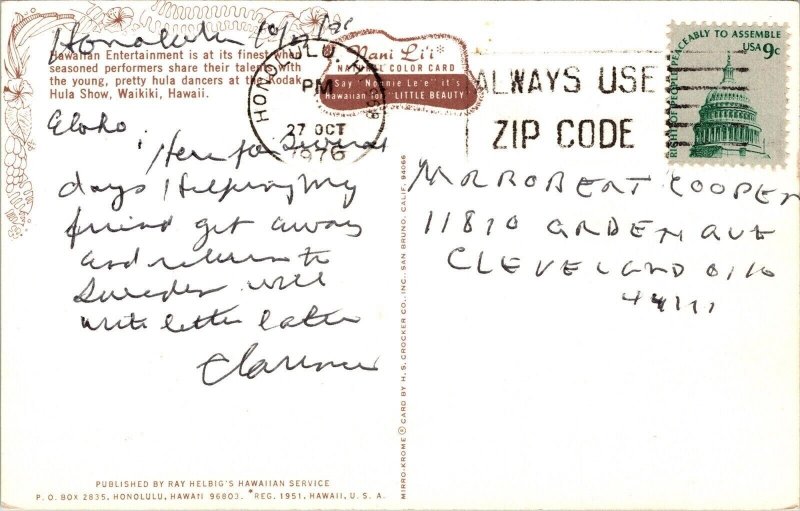 Honolulu 10/27/
Hawaiian Entertainment is at its finest when
seasoned performers share their talents with
the young, pretty hula dancers at the Kodak
Hula Show, Waikiki, Hawaii.
Nani Li'i*
NATURAL COLOR CARD
Say "Nonnie Le'e" it's
Hawaiian for "LITTLE BEAUTY"
HONOLULU, HI 968
PM
27 OCT
1976
ALWAYS USE
ZIP CODE
RIGHT OF PEOPLE PEACEABLY TO ASSEMBLE
USA 9c
Here for several
days Helping My
friend get away
and return to
Sweden will
write letter later
Clarence
MR ROBERT COOPER
11810 ARDEN AVE
CLEVELAND OHIO
44111
MIRRO-KROME ® CARD BY H. S. CROCKER CO., INC., SAN BRUNO, CALIF. 94066
PUBLISHED BY RAY HELBIG'S HAWAIIAN SERVICE
P. O. BOX 2835, HONOLULU, HAWAII 96803. *REG. 1951, HAWAII, U. S. A.